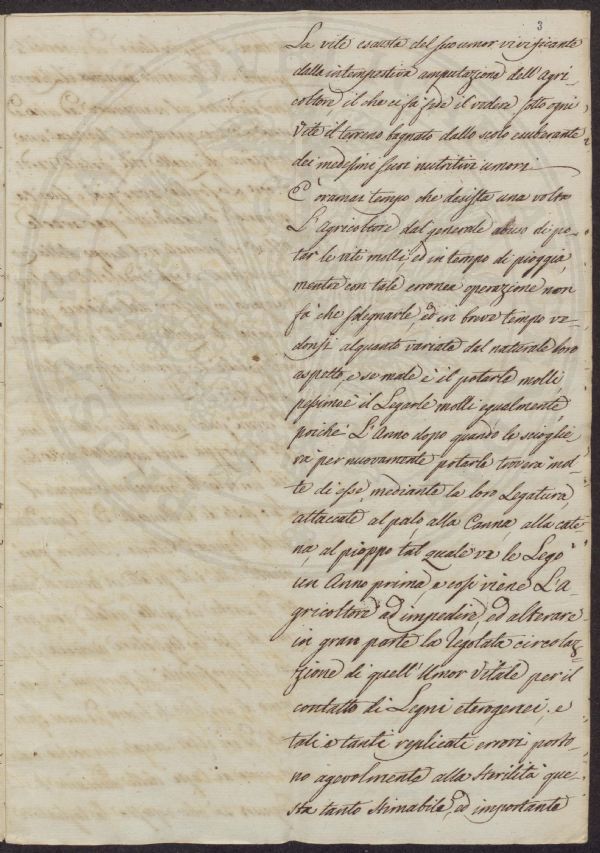 3
La vite esausta del suo umor vivificante
dalla intempestiva amputazione dell'agri-
coltore, il che ci fà fede il vedere sotto ogni
Vite il terreno bagnato dallo scolo esuberante
dei medesimi suoi nutritivi umori.
È oramai tempo che desista una volta
L'Agricoltore dal generale abuso di po-
tar le viti molli ed in tempo di pioggia,
mentre con tale erronea operazione non
fà che sdegnarle, ed in breve tempo ve-
donsi alquanto variate dal naturale loro
aspetto, e se male è il potarle molli
pessimo è il Legarle molli egualmente,
poiché L'Anno dopo quando le scioglie
rà per nuovamente potarle troverà mol-
te di esse, mediante la loro Legatura,
attaccate al palo, alla Canna, alla cate
na, al pioppo tal quale ve le Legò
un Anno prima, e così viene L'A-
gricoltore ad impedire, ed alterare
in gran parte la regolata circolaz-
zione di quell'Umor Vitale per il
contatto di Legni eterogenei; e
tali e tanti replicati errori porto-
no agevolmente alla sterilità que-
sta tanto stimabile, ed importante